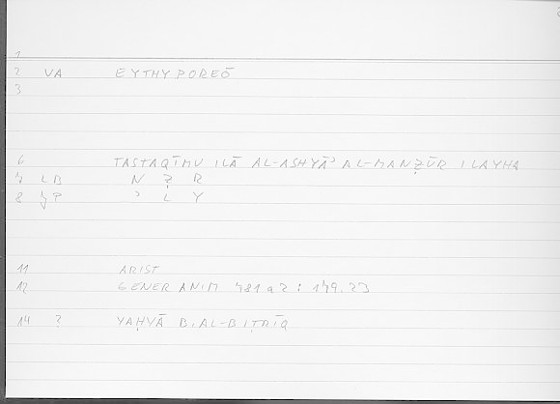 1
2 VA EYTHYPOREŌ
3
6 TASTAQĪMU ILĀ AL-ASHYĀʾ AL-MANẒŪR ILAYHA
7 LB N Ẓ R
8 ʾ L Y
11 ARIST
12 GENER ANIM 781 a 2 : 179.23
14 ? YAḤYĀ B.AL-BIṬRĪQ